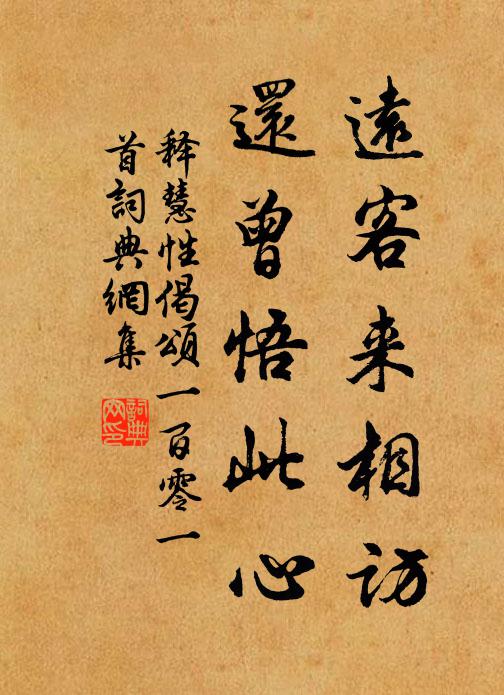 遠客来相訪
還曾悟此心
释慧性偈頌一百零一
首詞典網集
詞典
网印